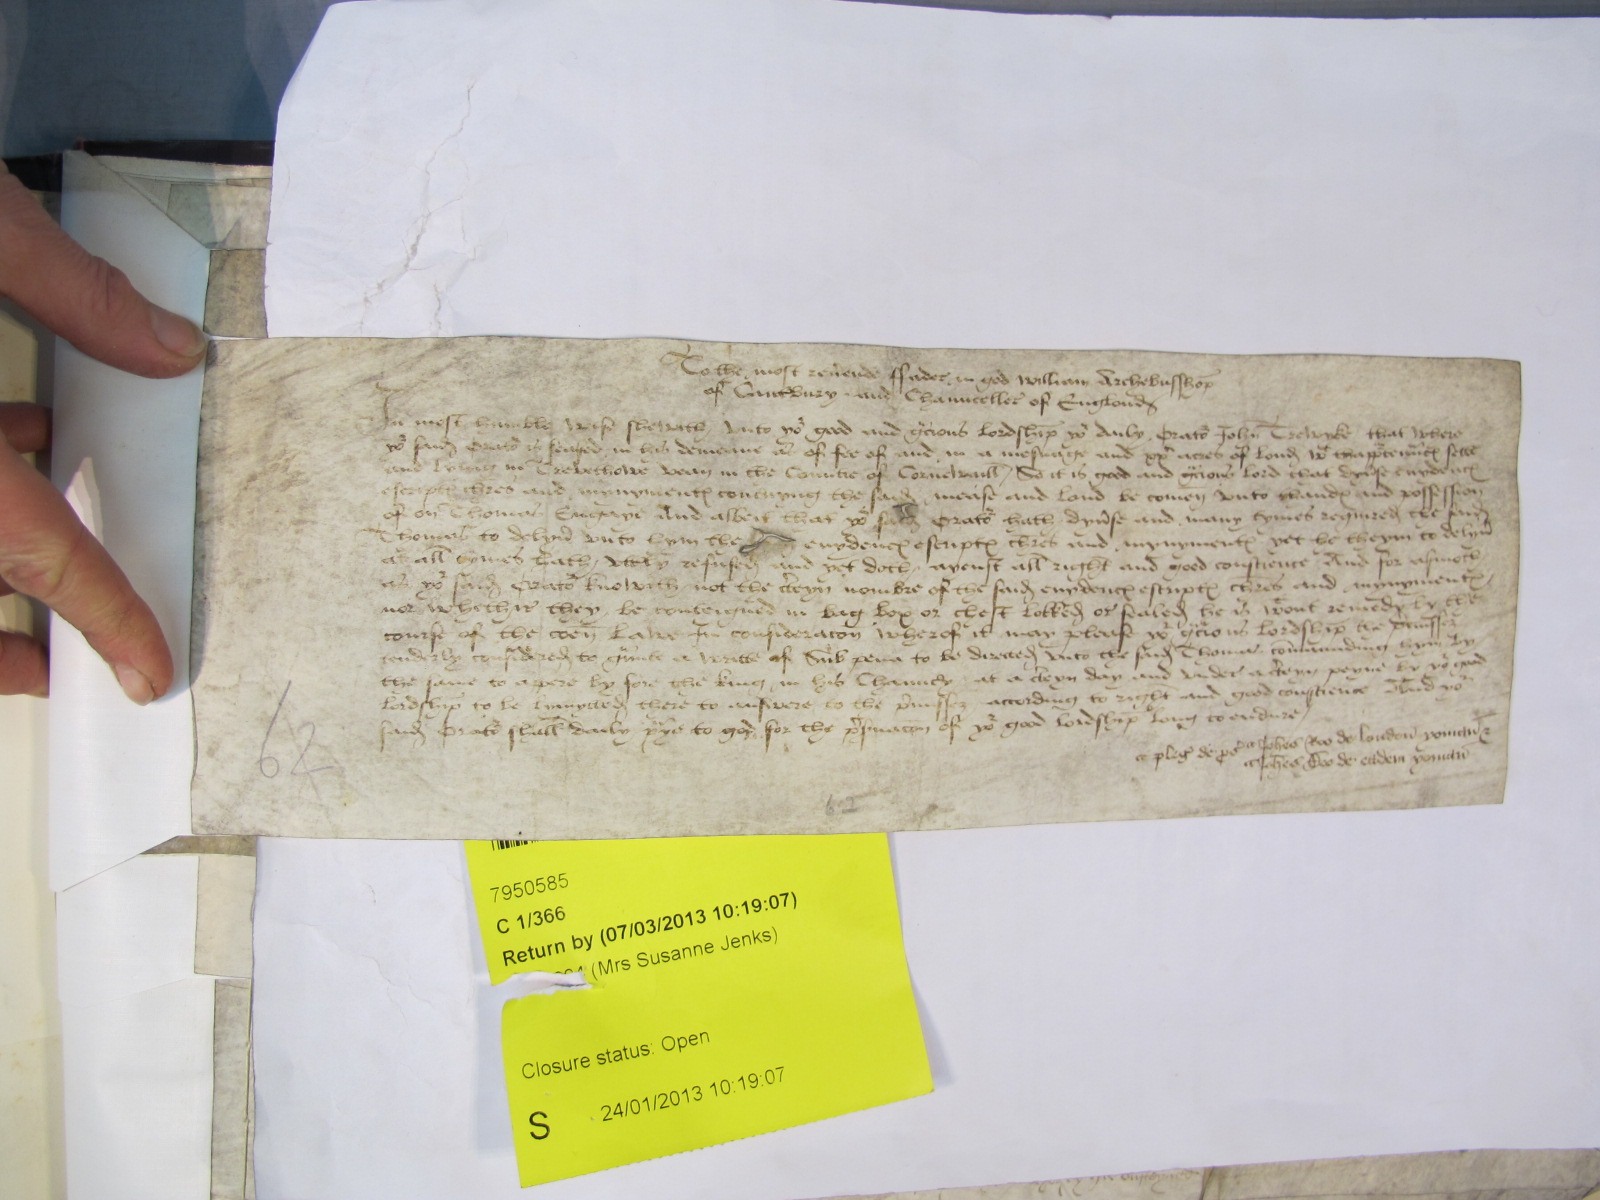 To the most reuende ffader in god william Archebusshop
of Cant'bury and Chauncellr of Englond
In most humble wise shewith vnto yor good and gracious lordship yor daily Orator John Trewyke that where
yor said Orator is seased in his demeane as of fee of and in a mesuage and xx acres of lond wt thapp'tenncs sette
and lying in Trewthowe vean in the Countie of Cornewaill / So it is good and gracious lord that dyu'se euydencs
escripts chres and mynymentz conc'nyng the said mease and land be comen vnto thands and possession
of on Thomas And albeit that yor said Orator hath dyu'se and many tymes required the said
Thomas to delyu' vnto hym the euydencs escripts chres and mynymentz yet he theym to delyu'
at all tymes hath vtt'ly refused and yet doth ayenst all right and good conscience And for asmoch
as yor said Orator knowith not the c'teyn nombre of the said euydencs escripts chres and mynymentz
nor whethir they be conteigned in bag box or chest lokked or sealed he is wtout remedy by the
course of the coen lawe In consideracon wherof it may please yor gracious lordship the p'misses
tenderly considered to g'unte a writte of Sub pena to be directed vnto the said Thomas comaunding hym by
the same to apere by fore the king in his Chauncy at a c'teyn day and vnder a c'teyn peyne by yor good
lordship to be lymytted there to answere to the p'misses according to right and good conscience And yor
said Orator shall daily p'ye to god for the p's'uacon of yor good lordship long to endure
pleg' de ps' Johes Roo de london yoman &
Johes Roo de eadem yoman
62
62
7950585
C 1/366
Return by (07/03/2013 10:19:07)
(Mrs Susanne Jenks)
Closure status: Open
S 24/01/2013 10:19:07